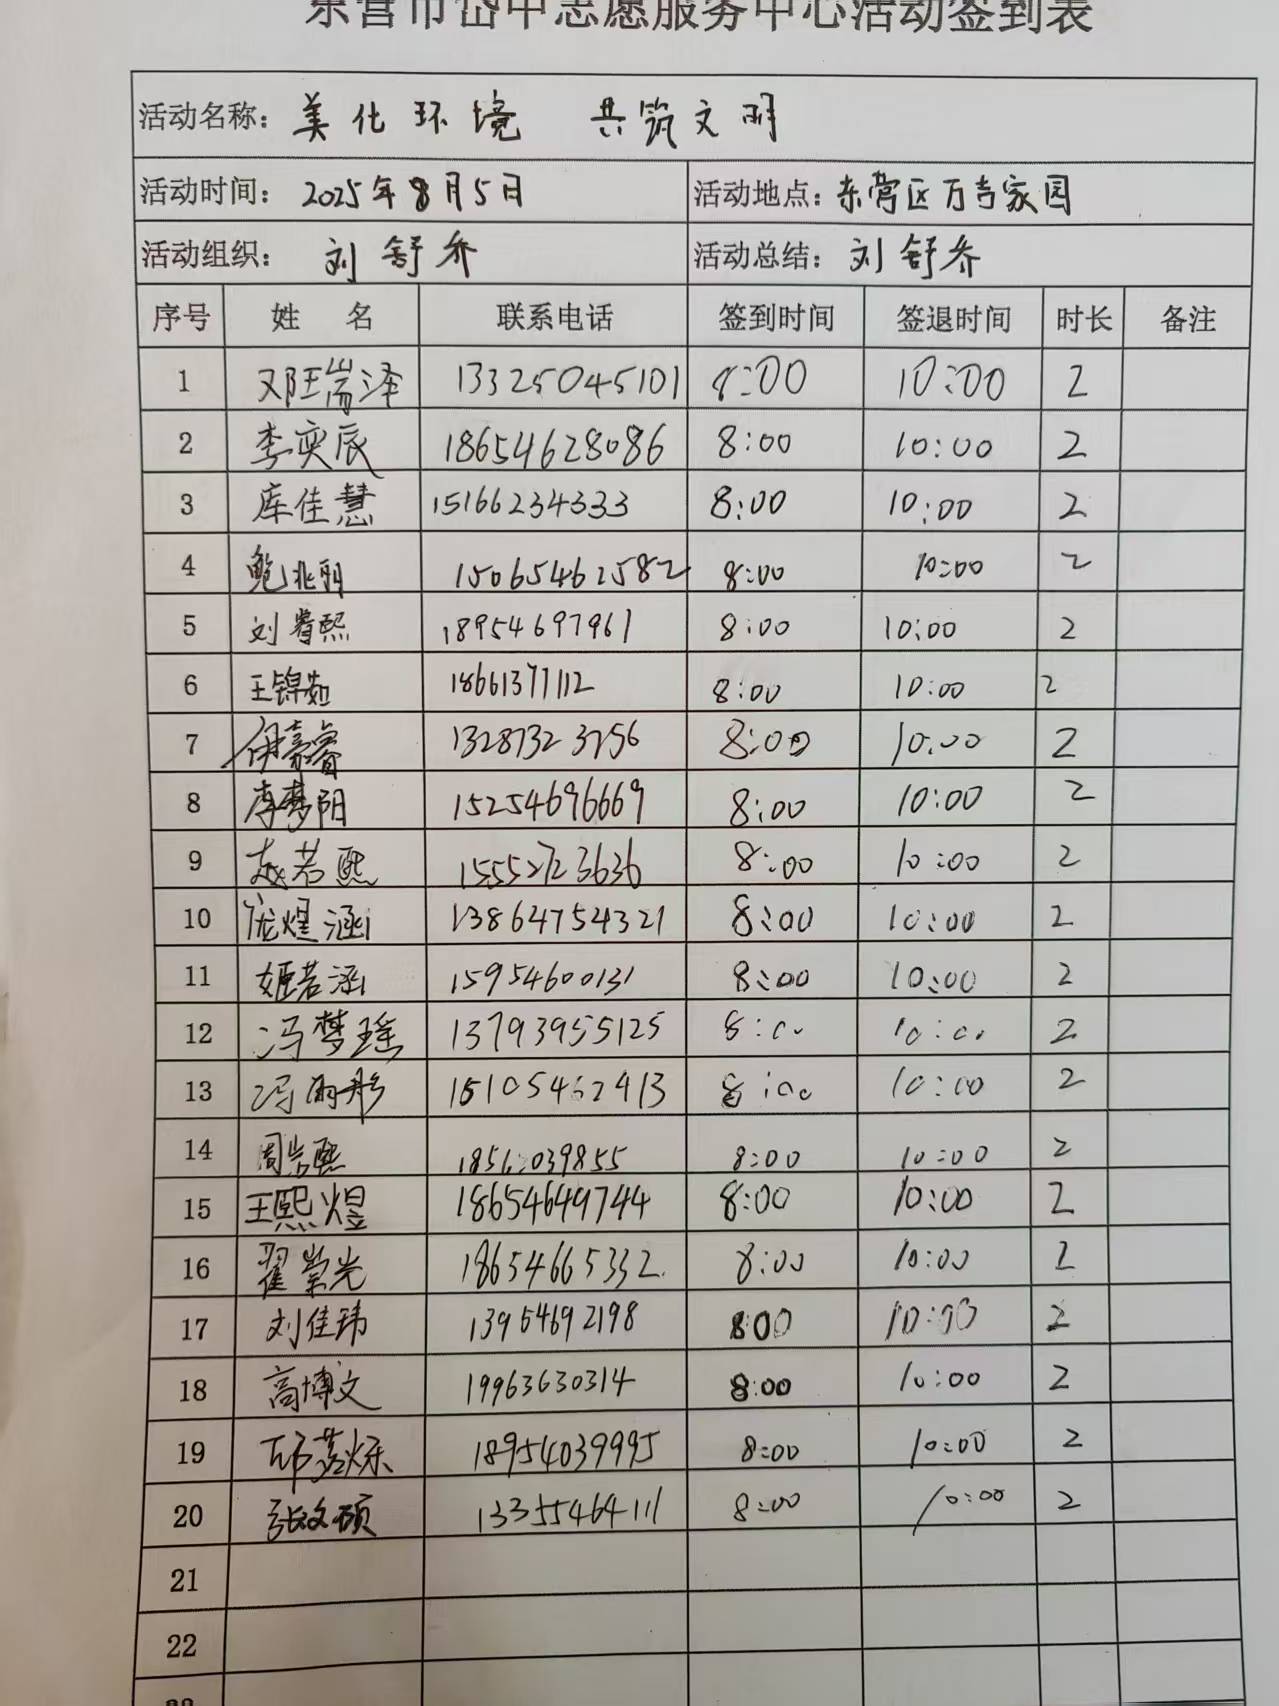 东营市岱中志愿服务中心活动签到表
活动名称：美化环境 共筑文明
活动时间：2025年8月5日 活动地点：东营区万吉家园
活动组织：刘舒乔 活动总结：刘舒乔
序号 姓 名 联系电话 签到时间 签退时间 时长 备注
1 13325045101 8:00 10:00 2
2 李奕辰 18654628086 8:00 10:00 2
3 库佳慧 15166234333 8:00 10:00 2
4 鲍兆明 15065462582 8:00 10:00 2
5 刘睿熙 18954697961 8:00 10:00 2
6 王锦茹 18661377112 8:00 10:00 2
7 伊嘉睿 13287323756 8:00 10:00 2
8 李梦阳 15254696669 8:00 10:00 2
9 赵若熙 15552723636 8:00 10:00 2
10 庞煜涵 13864754321 8:00 10:00 2
11 姬若涵 15954600131 8:00 10:00 2
12 冯梦瑶 13793955125 8:00 10:00 2
13 冯雨彤 15105462413 8:00 10:00 2
14 8:00 10:00 2
15 王熙煜 18654649744 8:00 10:00 2
16 翟崇光 18654665332 8:00 10:00 2
17 刘佳玮 13954692198 8:00 10:00 2
18 高博文 19963630314 8:00 10:00 2
19 18954039995 8:00 10:00 2
20 张文硕 13355464111 8:00 10:00 2
21
22